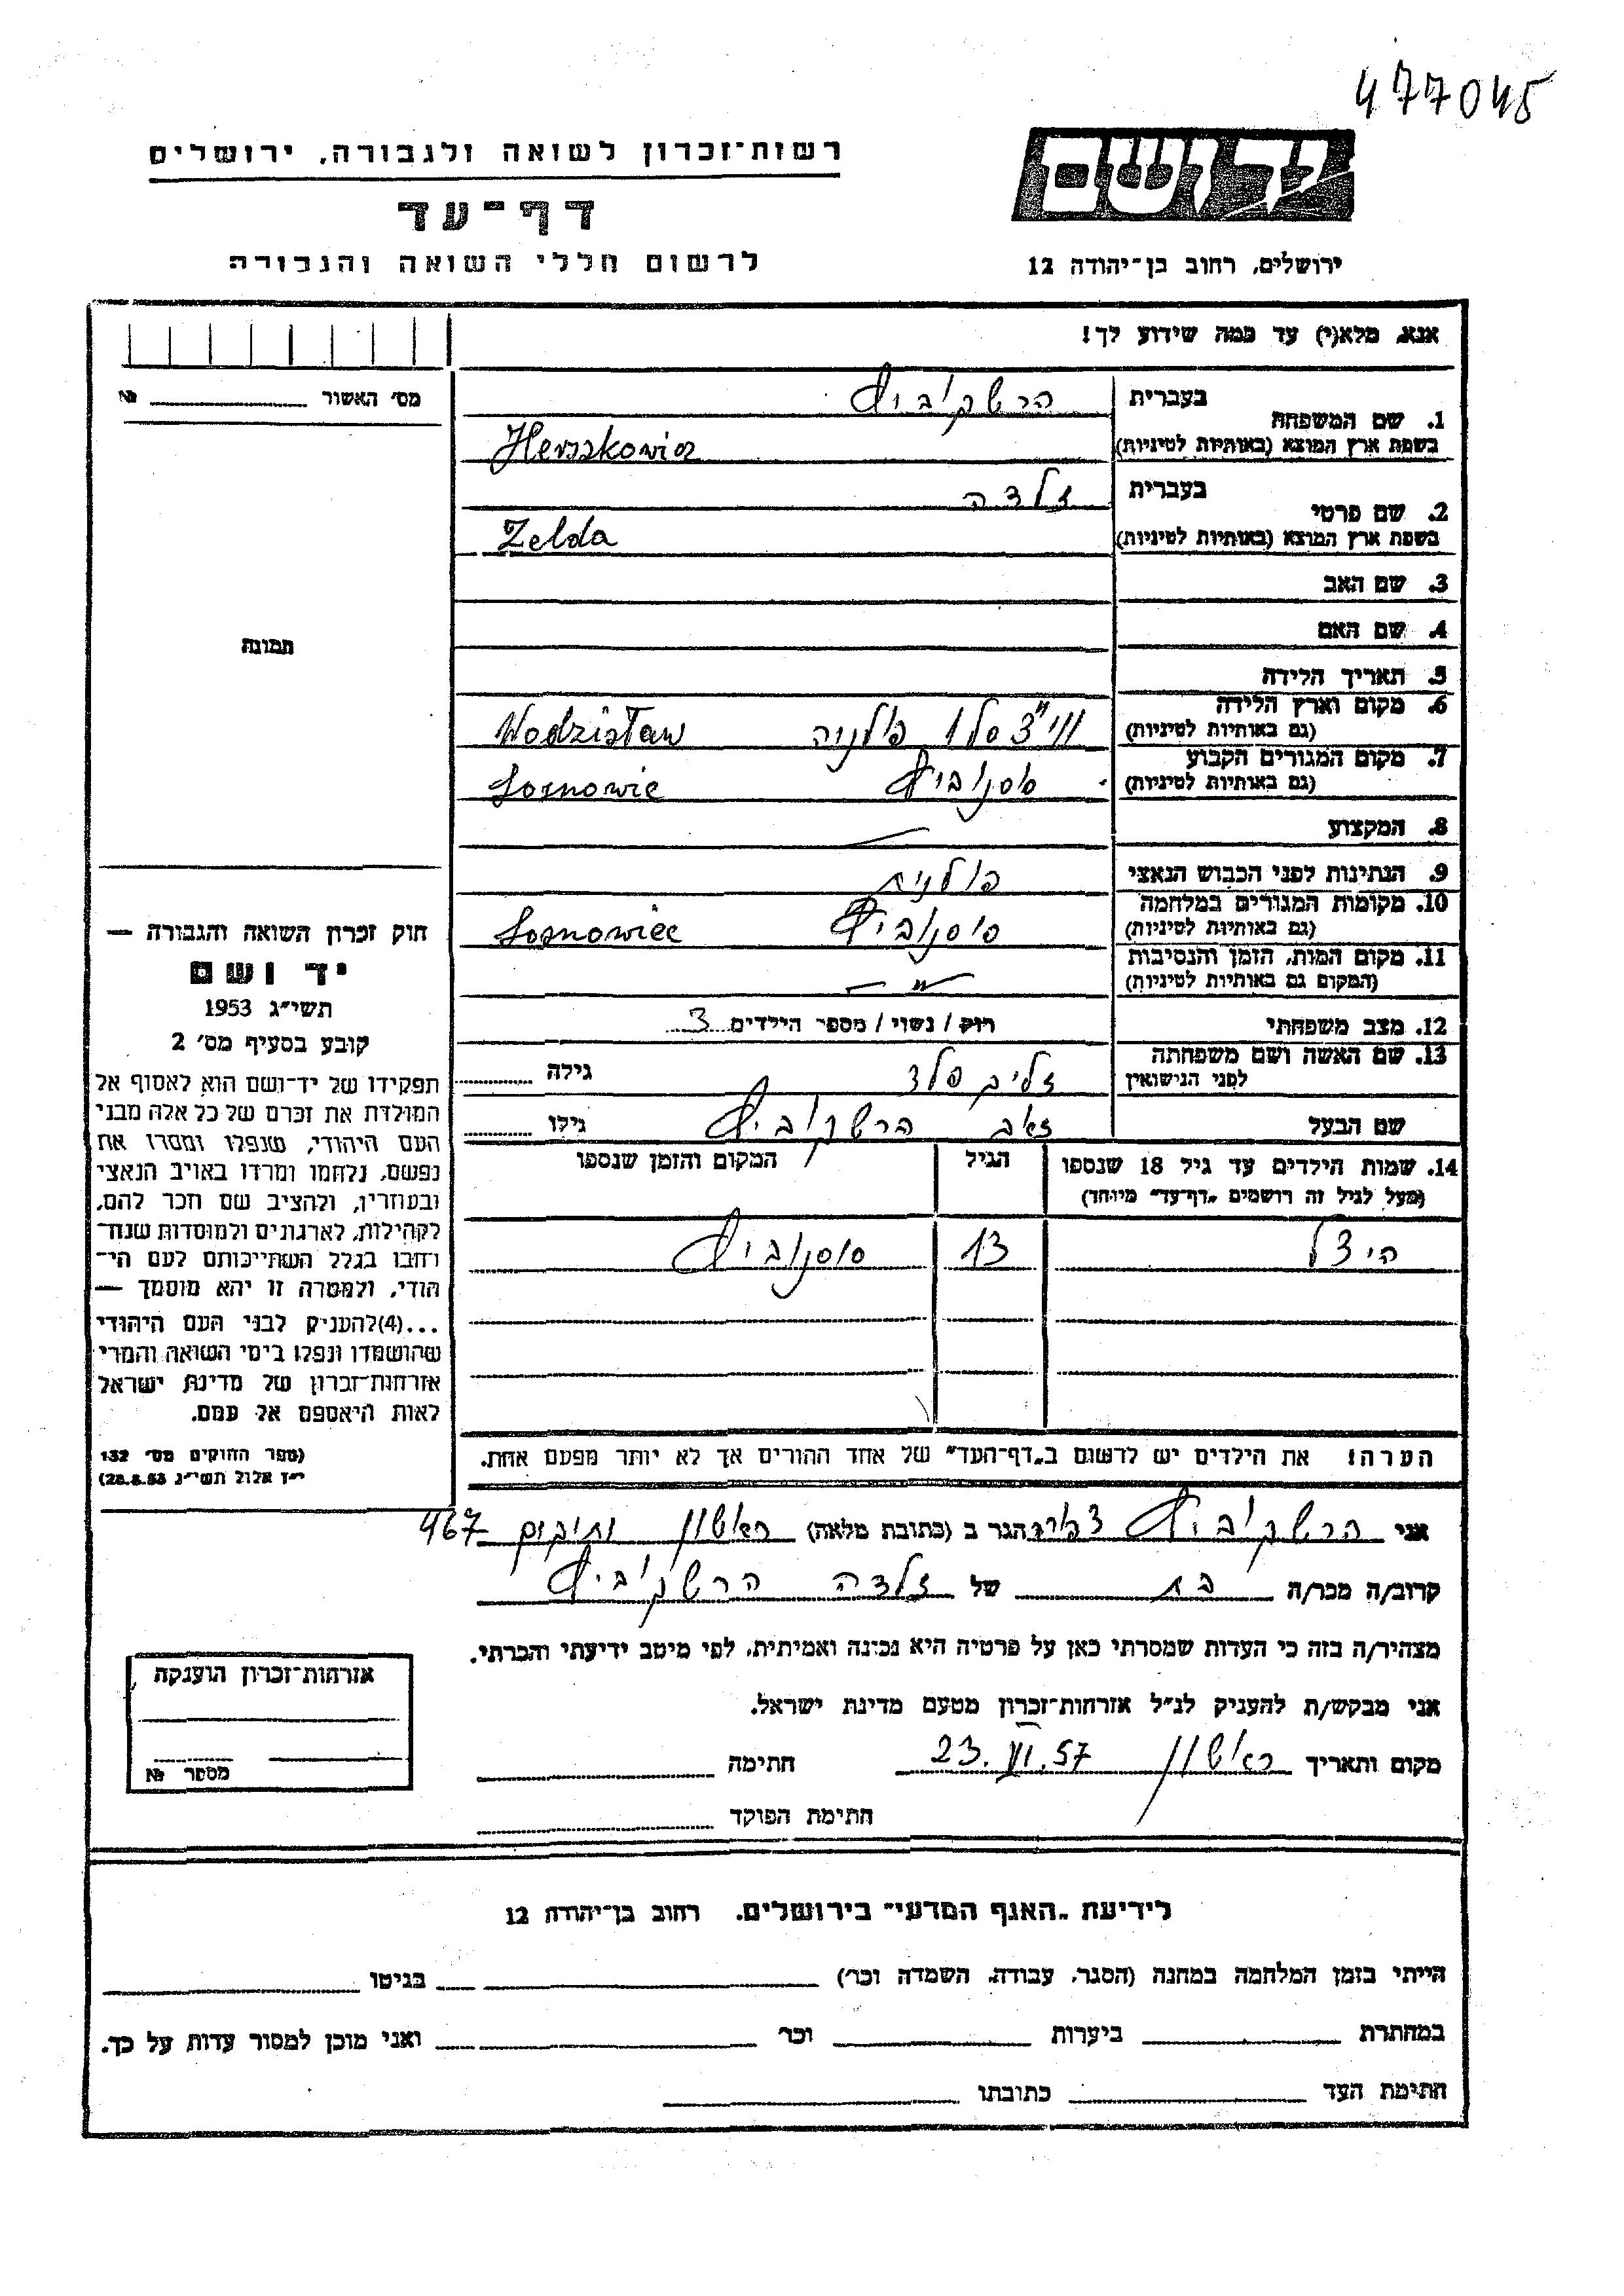 477045
יד ושם
רשות־זכרון לשואה ולגבורה, ירושלים
דף־עד
לרשום חללי השואה והגבורה
ירושלים, רחוב בן־יהודה 12
אנא, מלא(י) עד כמה שידוע לך!
מס' האשור №
תמונה
1. שם המשפחה
בעברית הרשקוביץ
בשפת ארץ המוצא (באותיות לטיניות) Herszkowicz
2. שם פרטי
בעברית זלדה
בשפת ארץ המוצא (באותיות לטיניות) Zelda
3. שם האב
4. שם האם
5. תאריך הלידה
6. מקום וארץ הלידה
(גם באותיות לטיניות) פולניה Wodzisław
7. מקום המגורים הקבוע
(גם באותיות לטיניות) סוסנוביץ Sosnowic
8. המקצוע
9. הנתינות לפני הכבוש הנאצי פולנית
10. מקומות המגורים במלחמה
(גם באותיות לטיניות) סוסנוביץ Sosnowiec
11. מקום המות, הזמן והנסיבות
(המקום גם באותיות לטיניות)
12. מצב משפחתי רווק / נשוי / מספר הילדים 3
13. שם האשה ושם משפחתה
לפני הנישואין גילה
שם הבעל זאב הרשקוביץ גילו
14. שמות הילדים עד גיל 18 שנספו
(מעל לגיל זה רושמים „דף־עד" מיוחד)
הגיל
המקום והזמן שנספו
13 סוסנוביץ
הערה! את הילדים יש לרשום ב„דף־העד" של אחד ההורים אך לא יותר מפעם אחת.
חוק זכרון השואה והגבורה —
יד ושם
תשי"ג 1953
קובע בסעיף מס' 2
תפקידו של יד־ושם הוא לאסוף אל
המולדת את זכרם של כל אלה מבני
העם היהודי, שנפלו ומסרו את
נפשם, נלחמו ומרדו באויב הנאצי
ובעוזריו, ולהציב שם וזכר להם,
לקהילות, לארגונים ולמוסדות שנח־
רבו בגלל השתייכותם לעם הי־
הודי, ולמטרה זו יהא מוסמך —
...(4)להעניק לבני העם היהודי
שהושמדו ונפלו בימי השואה והמרי
אזרחות־זכרון של מדינת ישראל
לאות היאספם אל עמם.
(ספר החוקים מס' 132
י"ז אלול תשי"ג 28.8.53)
אני הרשקוביץ הגר ב (כתובת מלאה) ראשון ותיקים 467
קרוב/ה מכר/ה בת של זלדה הרשקוביץ
מצהיר/ה בזה כי העדות שמסרתי כאן על פרטיה היא נכונה ואמיתית, לפי מיטב ידיעתי והכרתי.
אני מבקש/ת להעניק לנ"ל אזרחות־זכרון מטעם מדינת ישראל.
מקום ותאריך ראשון 23.VI.57 חתימה
חתימת הפוקד
אזרחות־זכרון הוענקה
מספר №
לידיעת „האגף המדעי" בירושלים, רחוב בן־יהודה 12
הייתי בזמן המלחמה במחנה (הסגר, עבודה, השמדה וכו') בגיטו
במחתרת ביערות וכו' ואני מוכן למסור עדות על כך.
חתימת העד כתובתו